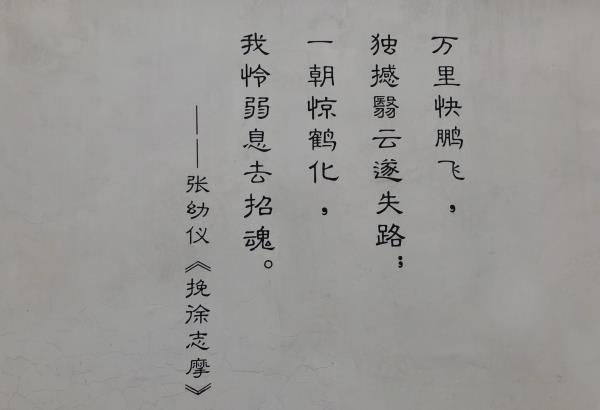 万里快鹏飞，
独撼翳云遂失路；
一朝惊鹤化，
我怜弱息去招魂。
——张幼仪《挽徐志摩》